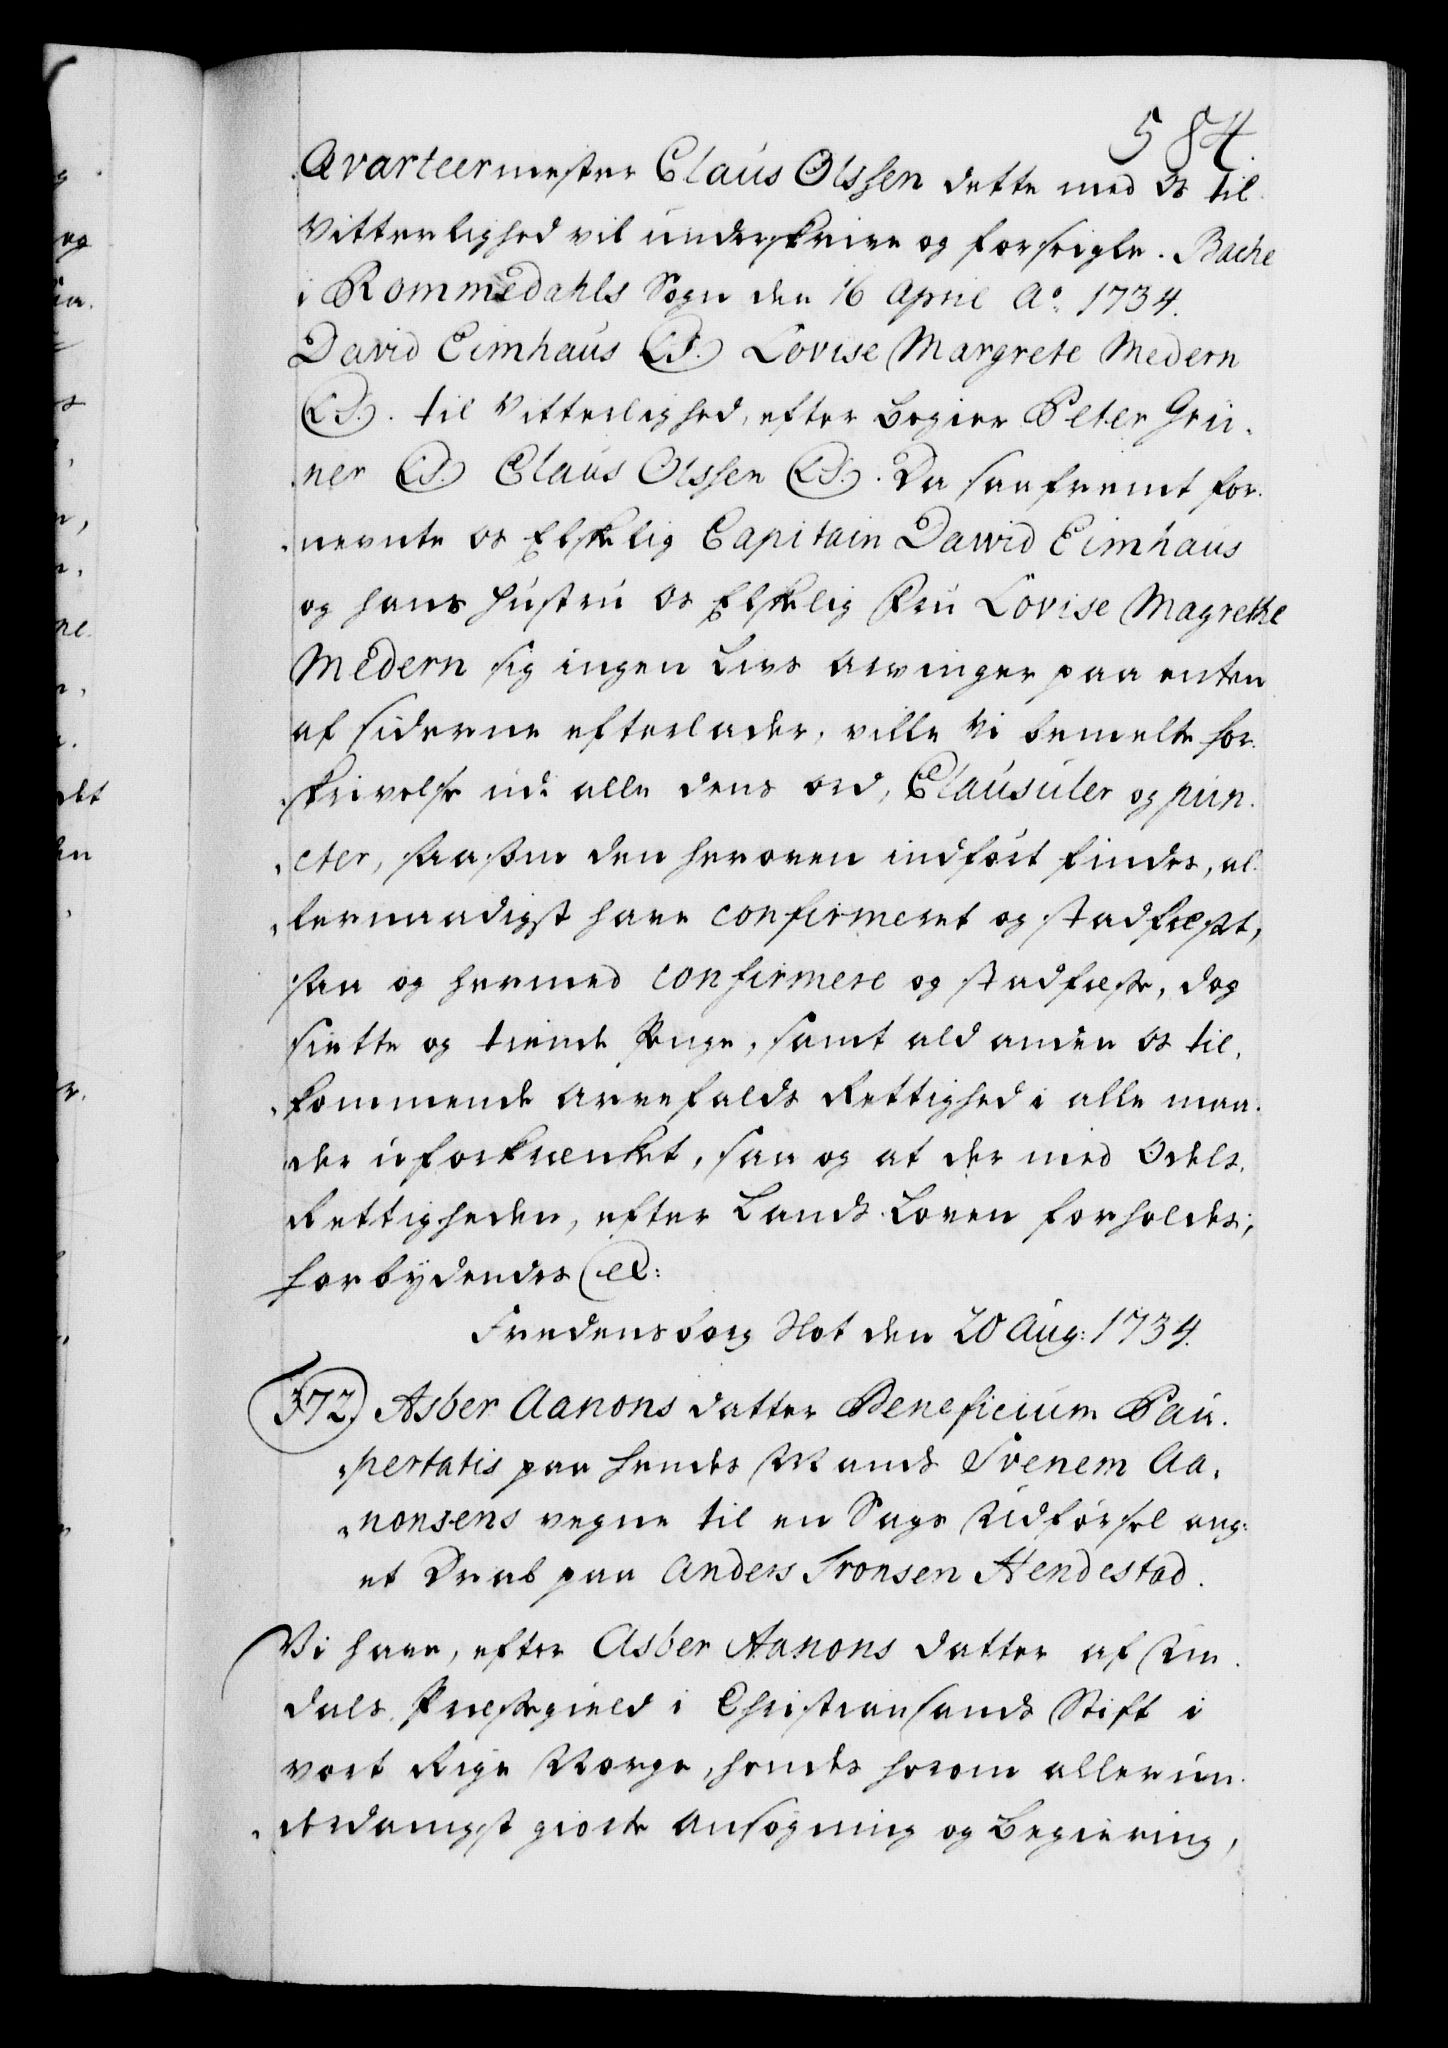 584.
Qvarteermester Claus Olssen dette med Os til
Vitterlighed vil underskrive og forseigle. Bache
i Rommedahls Sogn den 16 April Ao. 1734.
David Eimhaus (LS.) Lovise Margrete Medern
(LS.). til Vitterlighed, efter begier Peter Grü-
ner (LS.) Claus Olssen (LS.). Da saafremt for-
nevnte os Elskelig Capitain Dawid Eimhaus
og hans Hustru os Elskelig Fru Lovise Magrethe
Medern sig ingen Livs Arvinger paa enten
af siderne efterlader, ville Vi bemelte for-
skrivelse udi alle dens ord, Clausuler og pun-
cter, saasom den heroven indført findes, al-
lernaadigst have confirmeret og stadfæstet,
saa og hermed confirmere og stadfæste, dog
siette og tiende Penge, samt ald anden os til-
kommende Arvefalds Rettighed i alle maa-
der uforkrænket, saa og at der med Odels-
Rettigheden, efter Lands Loven forholdes;
forbydendes etc:
Fredensborg Slot den 20 Aug: 1734.
372.) Asber Aanons datter Beneficium Pau-
pertatis paa hendes Mands Svenem Aa-
nonsens vegne til en Sags Udførsel ang:
et Drab paa Anders Tronsen Hendestad.
Vi have, efter Asber Aanons datter af
dals Præstegield i Christiansands Stift i
vort Rige Norge, hendes herom allerun-
derdanigst giorte Ansøgning og Begiering,